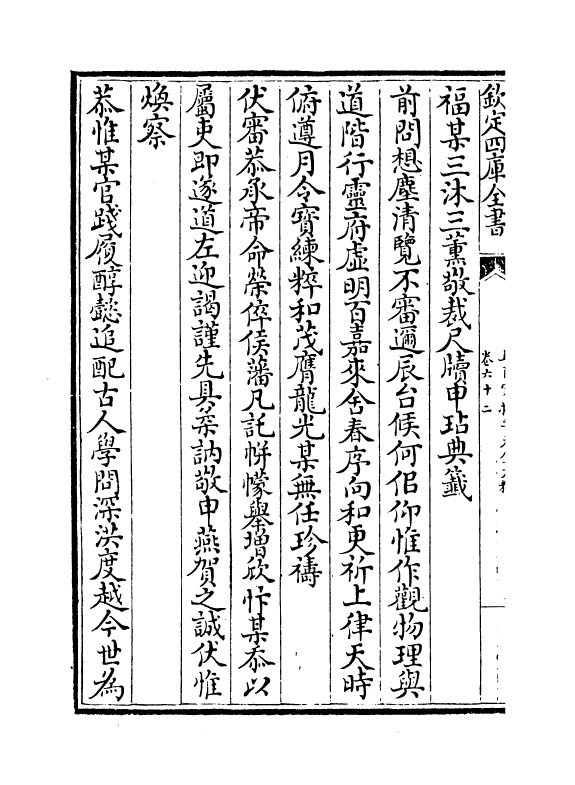 欽定四庫全書
卷六十二
福某三沐三薰敬裁尺牘申玷典籤
前問想塵清覽不審邇辰台候何佀仰惟作觀物理與
道階行靈府虛明百嘉來舍春序向和更祈上律天時
俯遵月令寳練粹和茂膺龍光某無任珍禱
伏審恭承帝命榮倅侯藩凡託帡幪舉増欣忭某忝以
屬吏即遂道左迎謁謹先具槀訥敬申燕賀之誠伏惟
煥察
恭惟某官踐履醇懿追配古人學問深洪度越今世為